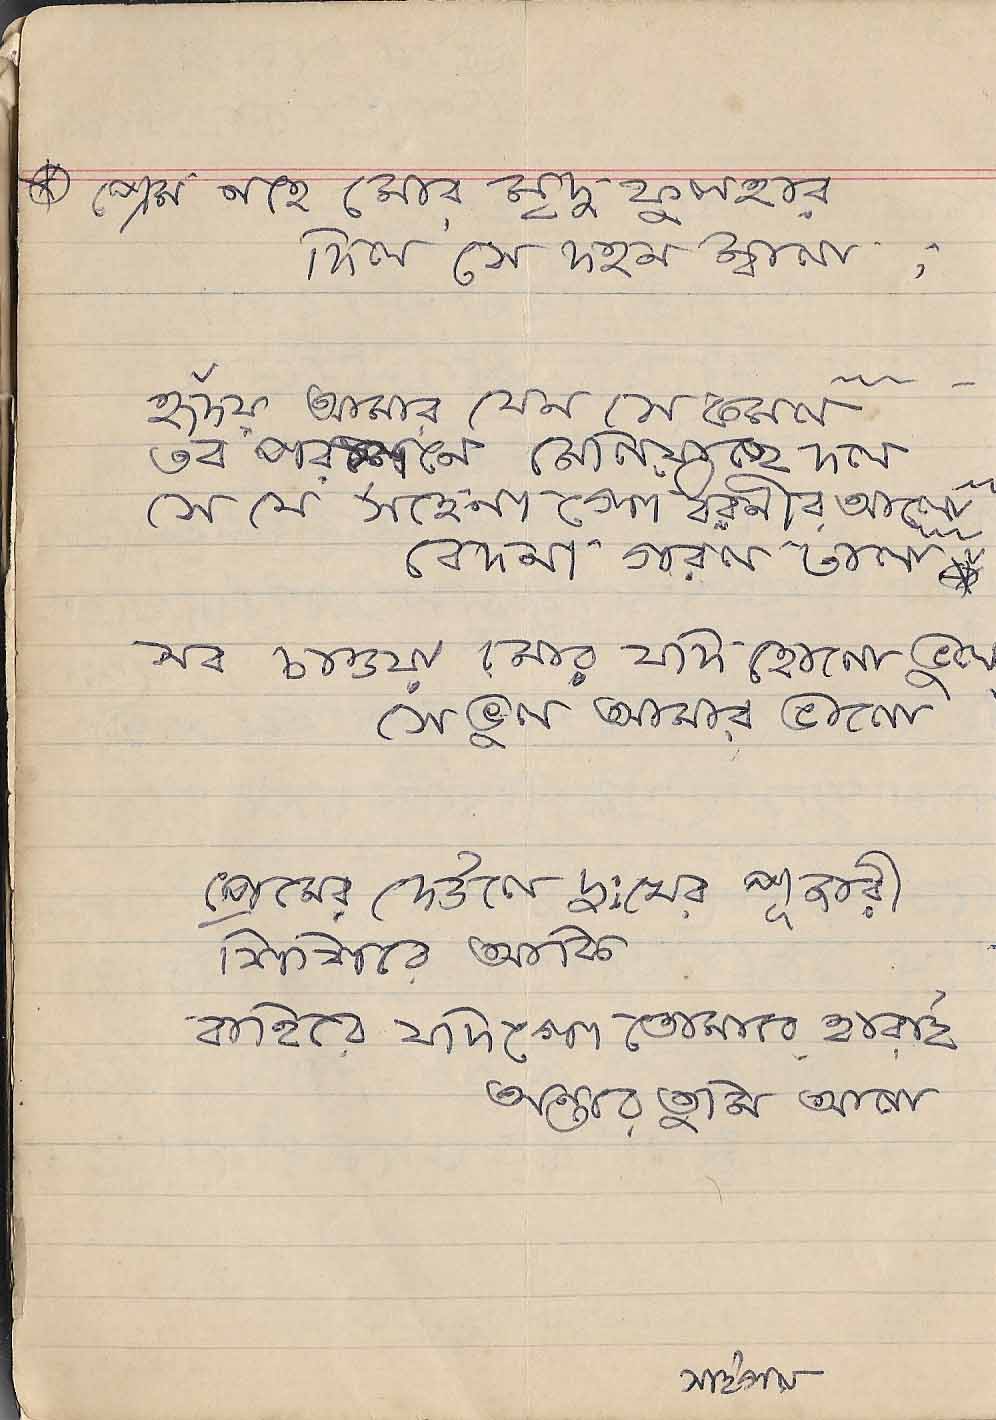 প্রেম নহে মোর মৃদু ফুলহার
দিল সে দহন জ্বালা ;
হৃদয় আমার যেন সে কমল
তব পরশনে মেলিয়াছে দল
সে যে সহেনা গো ধরনীর আলো
বেদনা গরল ঢালা
সব চাওয়া মোর যদি হোলো ভুল
সে ভুল আমার ভালো
প্রেমের দেউলে দুঃখের পূজারী
আমি
বাহিরে যদি গো তোমারে হারাই
অন্তরে তুমি আলা